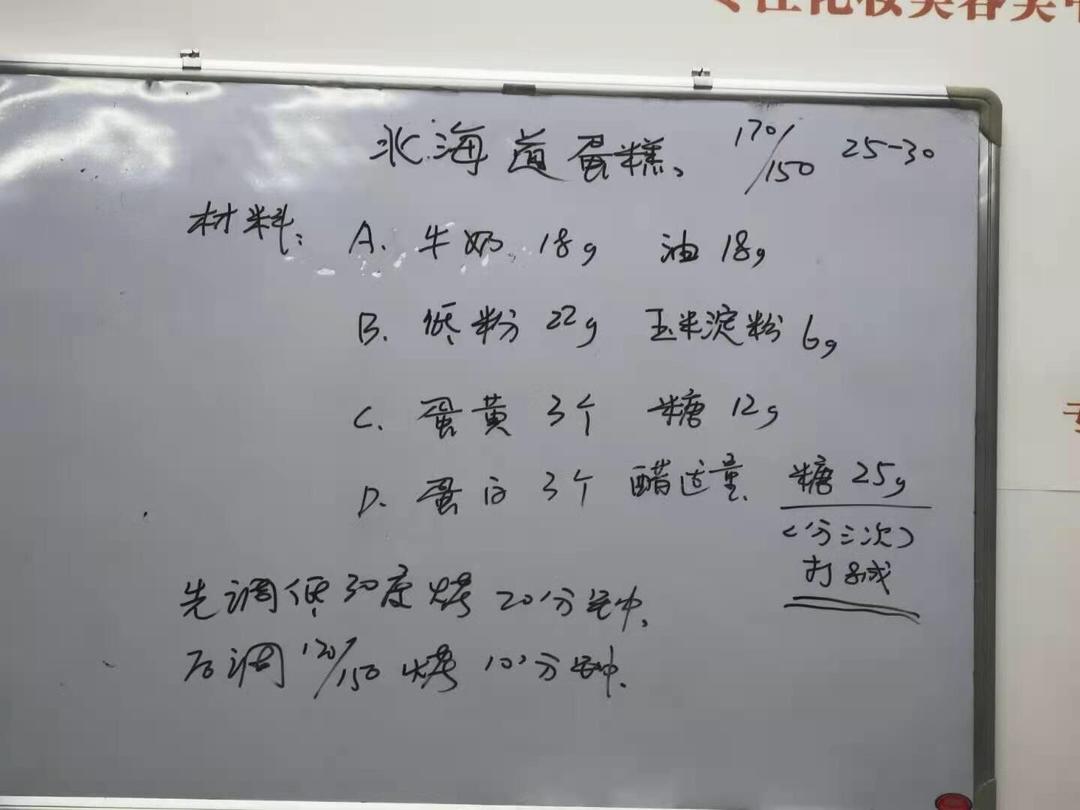 专注化妆美容美甲
北海道蛋糕。 170/150 25-30
材料: A. 牛奶 18g 油 18g
B. 低粉 22g 玉米淀粉 6g
C. 蛋黄 3个 糖 12g
D. 蛋白 3个 醋适量 糖 25g
(分三次)
打
先调低30度烤 20分钟.
后调170/150 烤 10分钟.
专